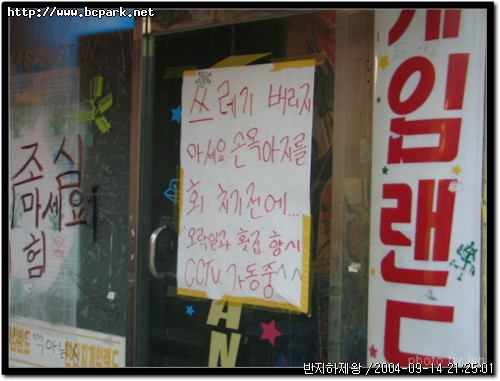 http://www.bcpark.net
쓰레기 버리지
마세요 손목아지를
회 치기전에...
오락실과 횟집 항시
CCTV 가동중^^
조심
마세요
힘
게임랜드
AN
반지하제왕 / 2004-09-14 21:25:01